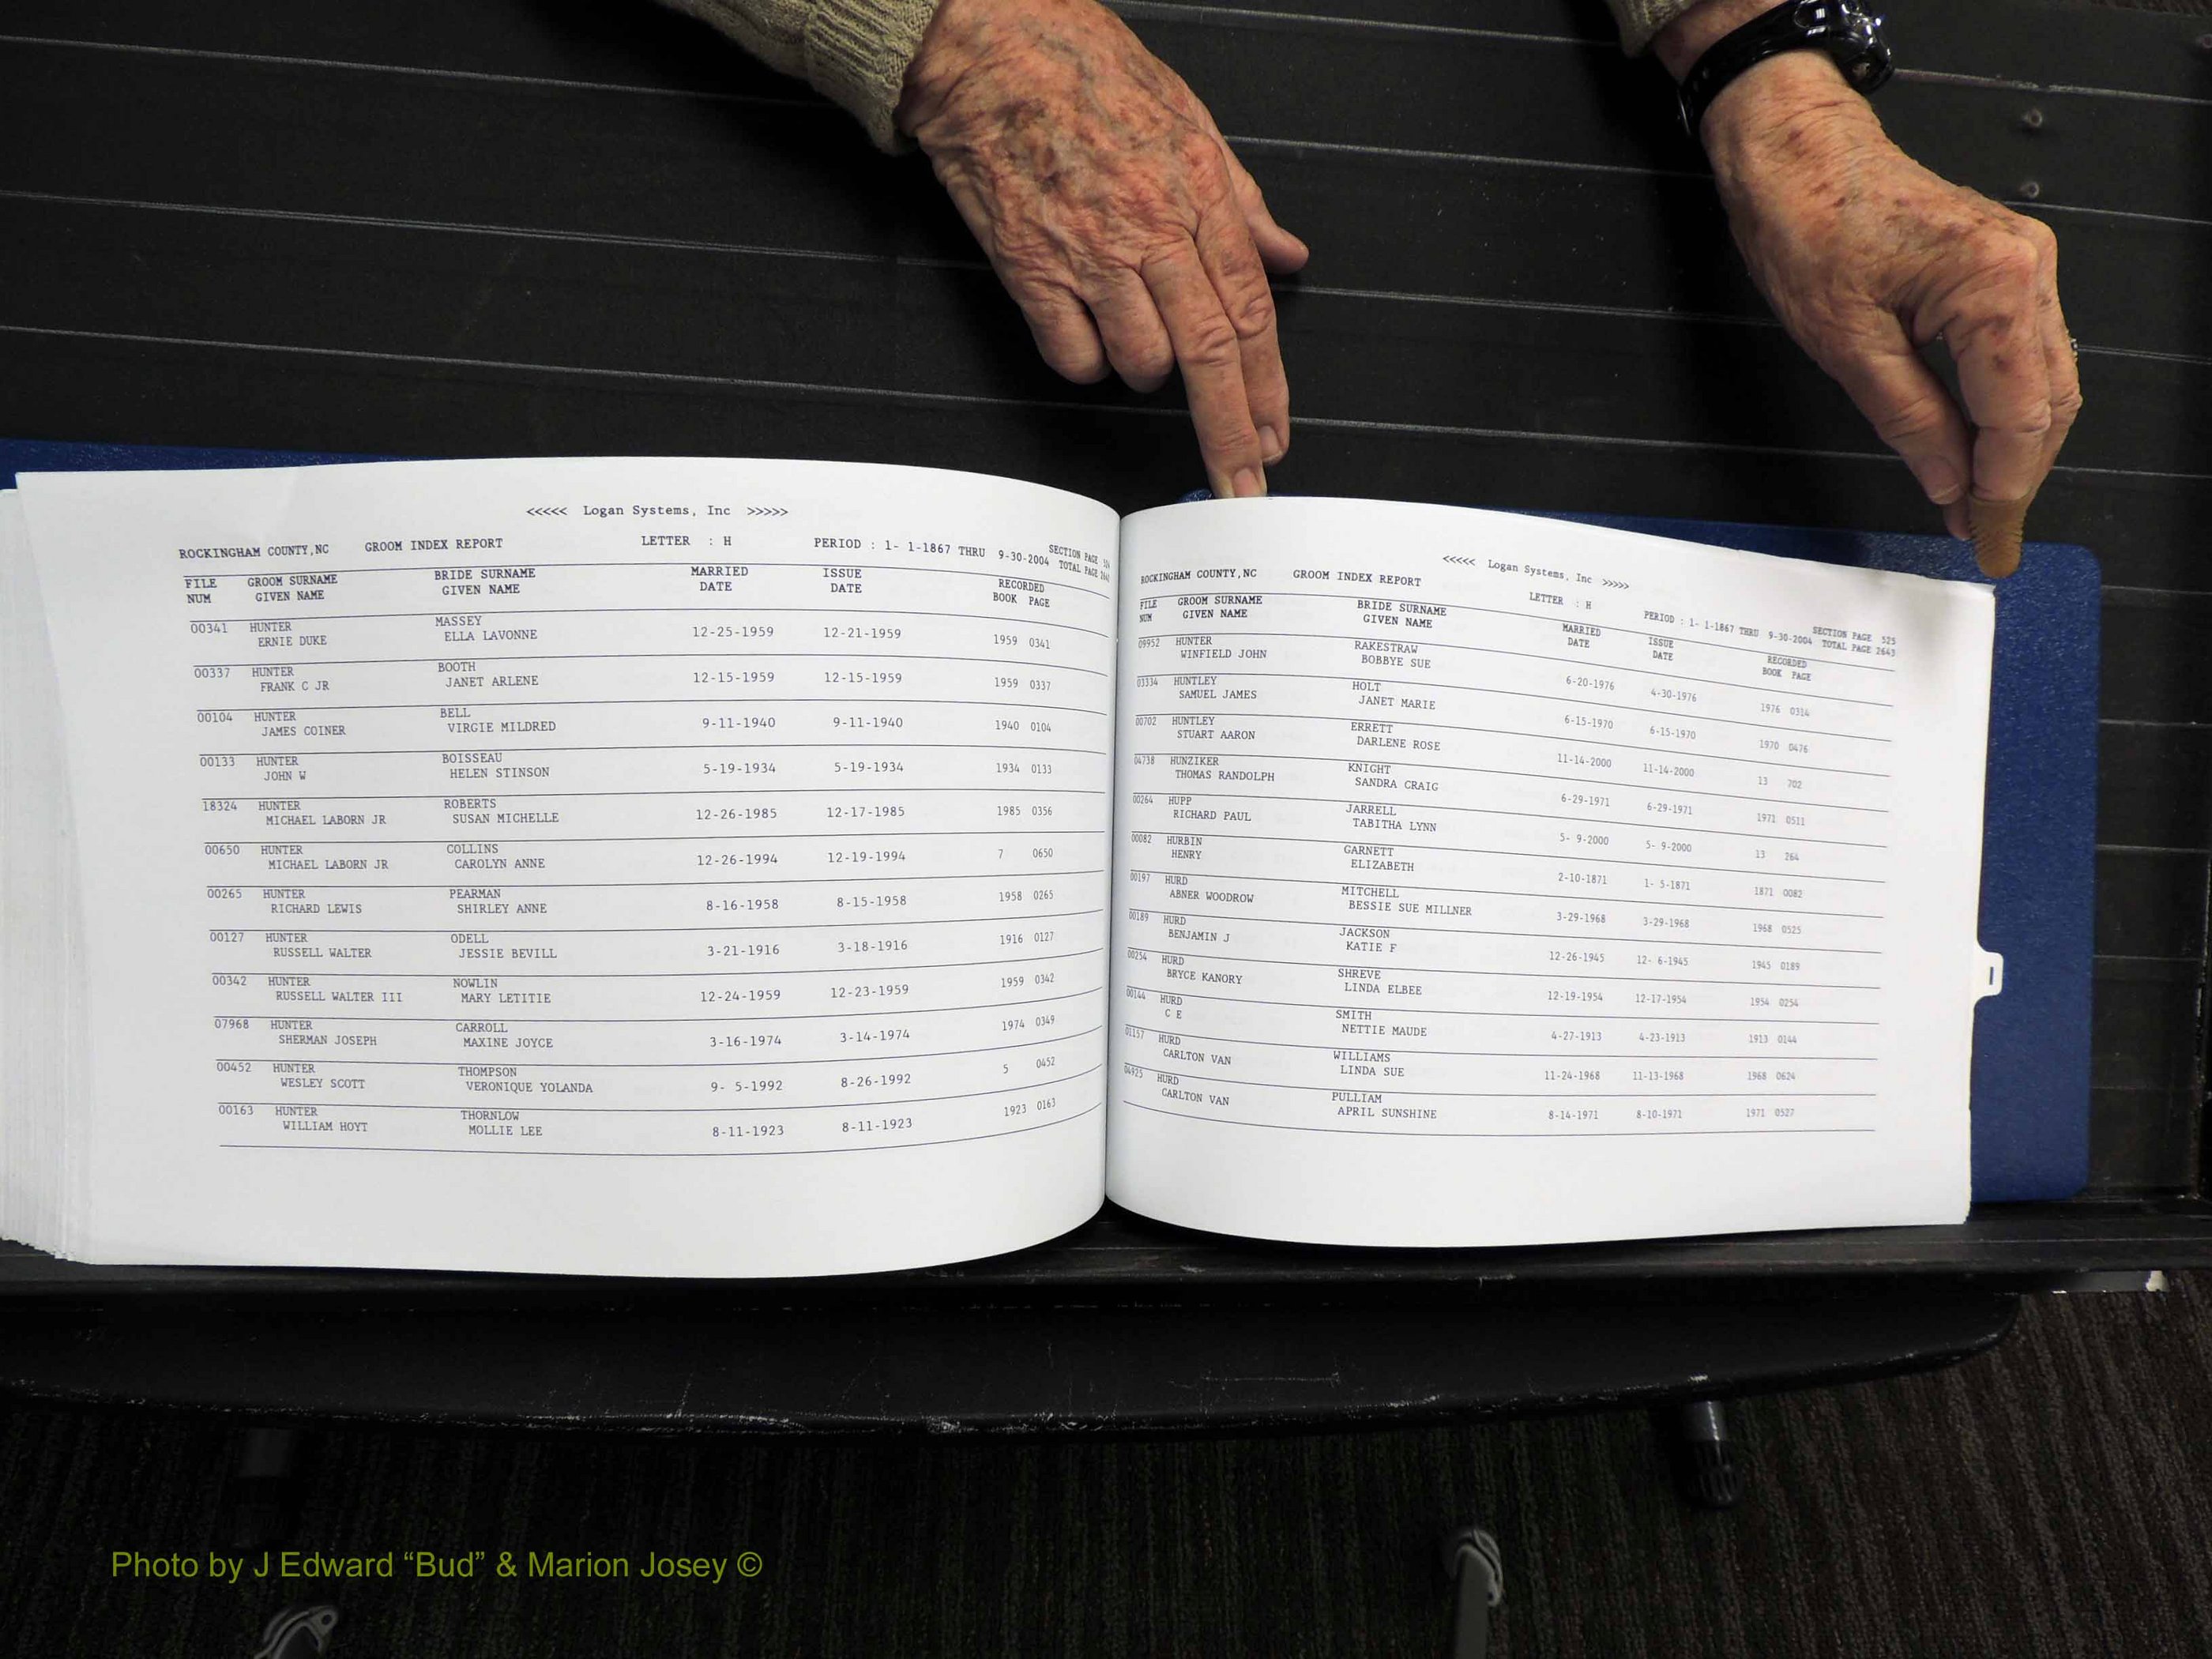 <<<<< Logan Systems, Inc >>>>>
ROCKINGHAM COUNTY,NC GROOM INDEX REPORT LETTER : H PERIOD : 1- 1-1867 THRU 9-30-2004 SECTION PAGE 524
TOTAL PAGE 2642
FILE GROOM SURNAME BRIDE SURNAME MARRIED ISSUE RECORDED
NUM GIVEN NAME GIVEN NAME DATE DATE BOOK PAGE
00341 HUNTER MASSEY
ERNIE DUKE ELLA LAVONNE 12-25-1959 12-21-1959 1959 0341
00337 HUNTER BOOTH
FRANK C JR JANET ARLENE 12-15-1959 12-15-1959 1959 0337
00104 HUNTER BELL
JAMES COINER VIRGIE MILDRED 9-11-1940 9-11-1940 1940 0104
00133 HUNTER BOISSEAU
JOHN W HELEN STINSON 5-19-1934 5-19-1934 1934 0133
18324 HUNTER ROBERTS
MICHAEL LABORN JR SUSAN MICHELLE 12-26-1985 12-17-1985 1985 0356
00650 HUNTER COLLINS
MICHAEL LABORN JR CAROLYN ANNE 12-26-1994 12-19-1994 7 0650
00265 HUNTER PEARMAN
RICHARD LEWIS SHIRLEY ANNE 8-16-1958 8-15-1958 1958 0265
00127 HUNTER ODELL
RUSSELL WALTER JESSIE BEVILL 3-21-1916 3-18-1916 1916 0127
00342 HUNTER NOWLIN
RUSSELL WALTER III MARY LETITIE 12-24-1959 12-23-1959 1959 0342
07968 HUNTER CARROLL
SHERMAN JOSEPH MAXINE JOYCE 3-16-1974 3-14-1974 1974 0349
00452 HUNTER THOMPSON
WESLEY SCOTT VERONIQUE YOLANDA 9- 5-1992 8-26-1992 5 0452
00163 HUNTER THORNLOW
WILLIAM HOYT MOLLIE LEE 8-11-1923 8-11-1923 1923 0163
<<<<< Logan Systems, Inc >>>>>
ROCKINGHAM COUNTY,NC GROOM INDEX REPORT LETTER : H PERIOD : 1- 1-1867 THRU 9-30-2004 SECTION PAGE 525
TOTAL PAGE 2643
FILE GROOM SURNAME BRIDE SURNAME MARRIED ISSUE RECORDED
NUM GIVEN NAME GIVEN NAME DATE DATE BOOK PAGE
09952 HUNTER RAKESTRAW
WINFIELD JOHN BOBBYE SUE 6-20-1976 4-30-1976 1976 0314
03334 HUNTLEY HOLT
SAMUEL JAMES JANET MARIE 6-15-1970 6-15-1970 1970 0476
00702 HUNTLEY ERRETT
STUART AARON DARLENE ROSE 11-14-2000 11-14-2000 13 702
04738 HUNZIKER KNIGHT
THOMAS RANDOLPH SANDRA CRAIG 6-29-1971 6-29-1971 1971 0511
00264 HUPP JARRELL
RICHARD PAUL TABITHA LYNN 5- 9-2000 5- 9-2000 13 264
00082 HURBIN GARNETT
HENRY ELIZABETH 2-10-1871 1- 5-1871 1871 0082
00197 HURD MITCHELL
ABNER WOODROW BESSIE SUE MILLNER 3-29-1968 3-29-1968 1968 0525
00189 HURD JACKSON
BENJAMIN J KATIE F 12-26-1945 12- 6-1945 1945 0189
00254 HURD SHREVE
BRYCE KANORY LINDA ELBEE 12-19-1954 12-17-1954 1954 0254
00144 HURD SMITH
C E NETTIE MAUDE 4-27-1913 4-23-1913 1913 0144
01157 HURD WILLIAMS
CARLTON VAN LINDA SUE 11-24-1968 11-13-1968 1968 0624
04925 HURD PULLIAM
CARLTON VAN APRIL SUNSHINE 8-14-1971 8-10-1971 1971 0527
I
Photo by J Edward “Bud” & Marion Josey ©